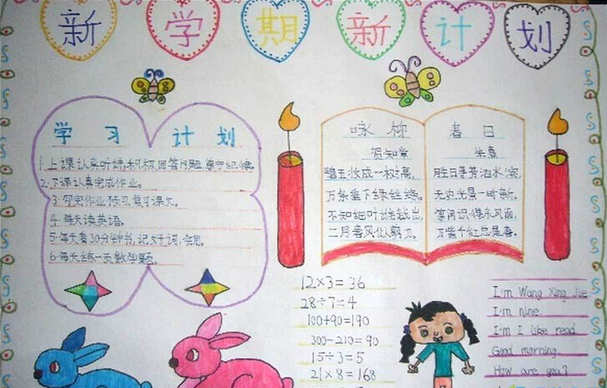 新学期新计划
学习计划
1.上课认真听讲积极回答问题,遵守纪律。
2.下课认真完成作业。
3.写完作业预习、复习课文。
4.每天读英语。
5.每天看30分钟书,记好词、好句。
6.每天练一页数学题。
咏柳
贺知章
碧玉妆成一树高,
万条垂下绿丝绦。
不知细叶谁裁出,
二月春风似剪刀。
春日
朱熹
胜日寻芳泗水滨,
无边光景一时新。
等闲识得东风面,
万紫千红总是春。
12×3=36
28÷7=4
100+90=190
300-210=90
15÷3=5
21×8=168
I'm Wang Xing Jie
I'm nine.
I'm I like read
Good morning.
How are you?